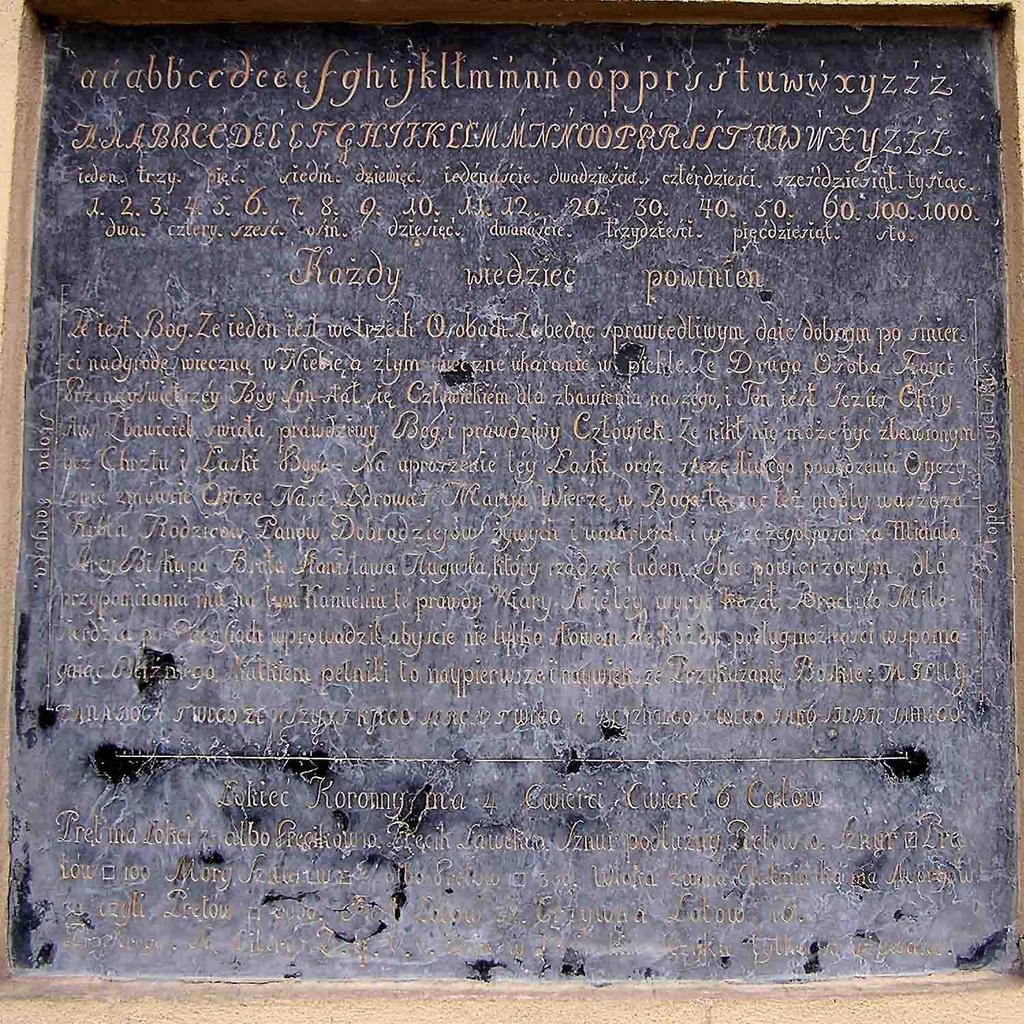 a á ą b b́ c ć d e é ę f g h i j k l ł m ḿ n ń o ó p ṕ r s ś t u w ẃ x y z ź ż
A Á Ą B B́ C Ć D E É Ę F G H I J K L Ł M Ḿ N Ń O Ó P Ṕ R S Ś T U W Ẃ X Y Z Ź Ż.
ieden. trzy. pięć. siedm. dziewięć. iedenaście. dwadzieścia. czterdzieści. sześćdziesiąt. tysiąc.
1. 2. 3. 4. 5. 6. 7. 8. 9. 10. 11. 12. 20. 30. 40. 50. 60. 100. 1000.
dwa. cztery. sześć. ośm. dziesięć. dwanaście. trzydzieści. pięćdziesiąt. sto.
Każdy wiedzieć powinien
Że iest Bog. Że ieden iest we trzech Osobach. Że będąc sprawiedliwym, daie dobrym po śmier-
ci nadgrodę wieczną w Niebie, a złym wieczne ukaranie w piekle. Że Druga Osoba Troycy
Przenayświętszey Bog Syn stał się Człowiekiem dla zbawienia naszego, i Ten iest Jezus Chry-
stus Zbawiciel świata, prawdziwy Bog, i prawdziwy Człowiek. Że nikt nie może być zbawionym
bez Chrztu i Łaski Bogu. Na uproszenie tey Łaski, oraz szczęśliwego powodzenia Oyczy-
znie zmówcie Oycze Nasz, Zdrowaś Marya, Wierzę w Boga, łącząc też modły waszę za
Króla, Rodziców, Panów, Dobrodziejów żywych i umarłych, i w szczególności za Michała
Arcy Biskupa Brata Stanisława Augusta, który rządząc ludem sobie powierzonym, dla
przypominania mu, na tym Kamieniu te prawdy Wiary Świętey wyryć kazał, Bractwo Miło-
sierdzia po Parafiach uprowadził, abyście nie tylko słowem ale każdy podług możności wspoma-
gaiąc Bliźniego, uczynkiem pełnili to naypierwsze i naywiększe Przykazanie Boskie: MIŁUY
PANA BOGA TWEGO ZE WSZYSTKIEGO SERCA TWEGO, A BLIŹNIEGO TWEGO JAKO SIEBIE SAMEGO.
Stopa Paryska.
Stopa Angielska
Łokieć Koronny, ma 4 Ćwierci, Ćwierć 6 Calow
Pręt ma Łokci albo Pręcików 10. Pręcik Ławek 10. Sznur podłużny Prętów 10. Sznur □ Prę-
tów □ 100 Morg Sznurów □ 3 albo Prętów □ 300. Włóka ma Morgów
30 czyli Prętów □ 9000. Łotów 32. Grzywna Łotów 16.